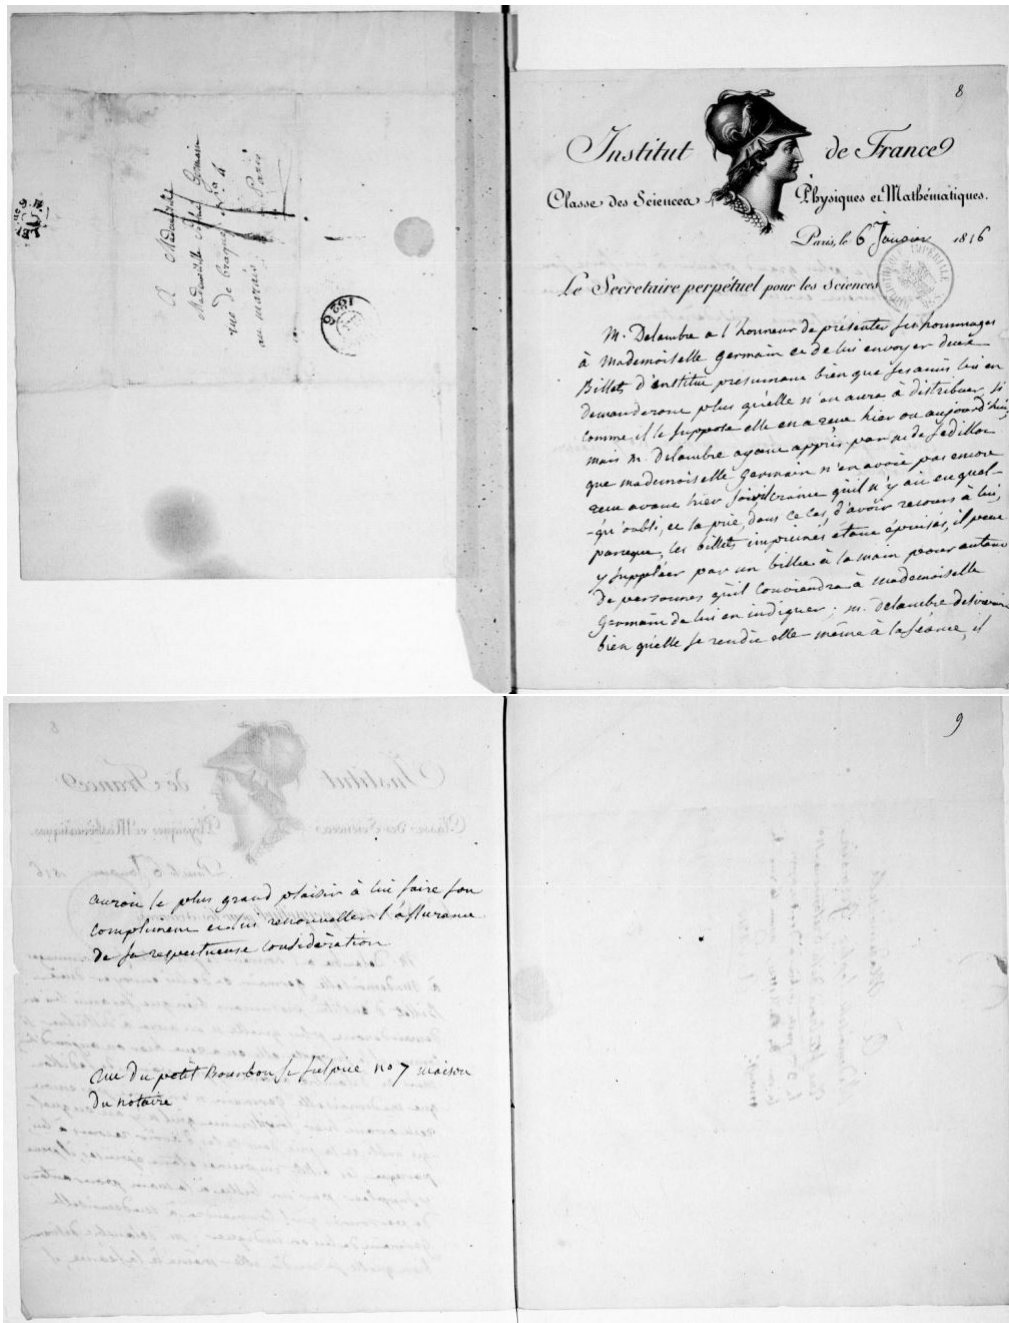 A Mademoiselle
Mademoiselle Sophie Germain
rue de braque no 4
au marais
Paris
1826
8
Institut de France
Classe des Sciences Physiques et Mathématiques.
Paris, le 6 Janvier 1816
Le Secrétaire perpétuel pour les Sciences
M. Delambre a l'honneur de présenter ses hommages
à Mademoiselle Germain et de lui envoyer deux
Billets d'institut présumant bien que ses amis lui en
demanderont plus qu'elle n'en aura à distribuer, si
comme il le suppose elle en a reçu hier ou aujourd'hui,
mais M. Delambre ayant appris par M. de Sedillot
que mademoiselle Germain n'en avoit pas encore
reçu avant hier soir, il craint qu'il n'y ait eu quel-
-qu'oubli, et la prie, dans ce cas, d'avoir recours à lui,
parceque, les billets imprimés etant épuisés, il peut
y suppléer par un billet à la main pour autant
de personnes qu'il conviendra à mademoiselle
Germain de lui en indiquer; M. Delambre desireroit
bien qu'elle se rendit elle-même à la séance, il
auroit le plus grand plaisir à lui faire son
compliment et lui renouveller l'assurance
de sa respectueuse considération
rue du petit Bourbon St Sulpice no 7 maison
du notaire
9